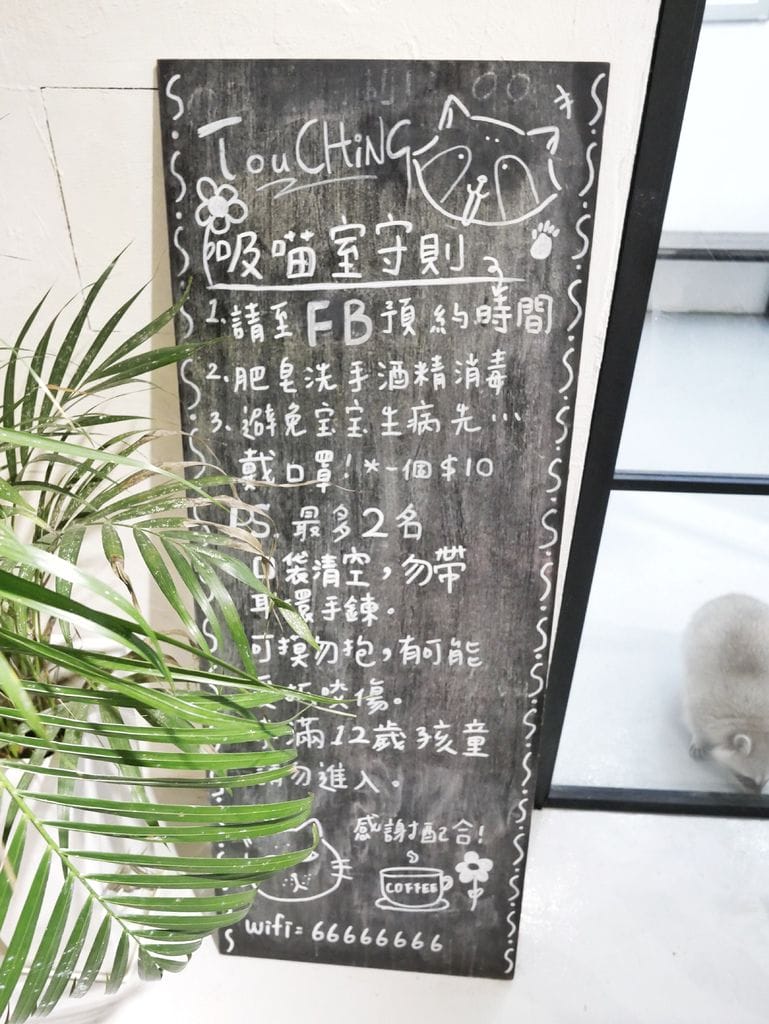 TouCHiNG
吸喵室守則
1. 請至 FB 預約時間
2. 肥皂洗手酒精消毒
3. 避免宝宝生病先...
戴口罩! *一個$10
PS. 最多2名
口袋清空,勿帶
耳環手鍊。
可摸勿抱,有可能
咬傷。
滿12歲孩童
請勿進入。
感謝配合!
COFFEE
wifi = 66666666